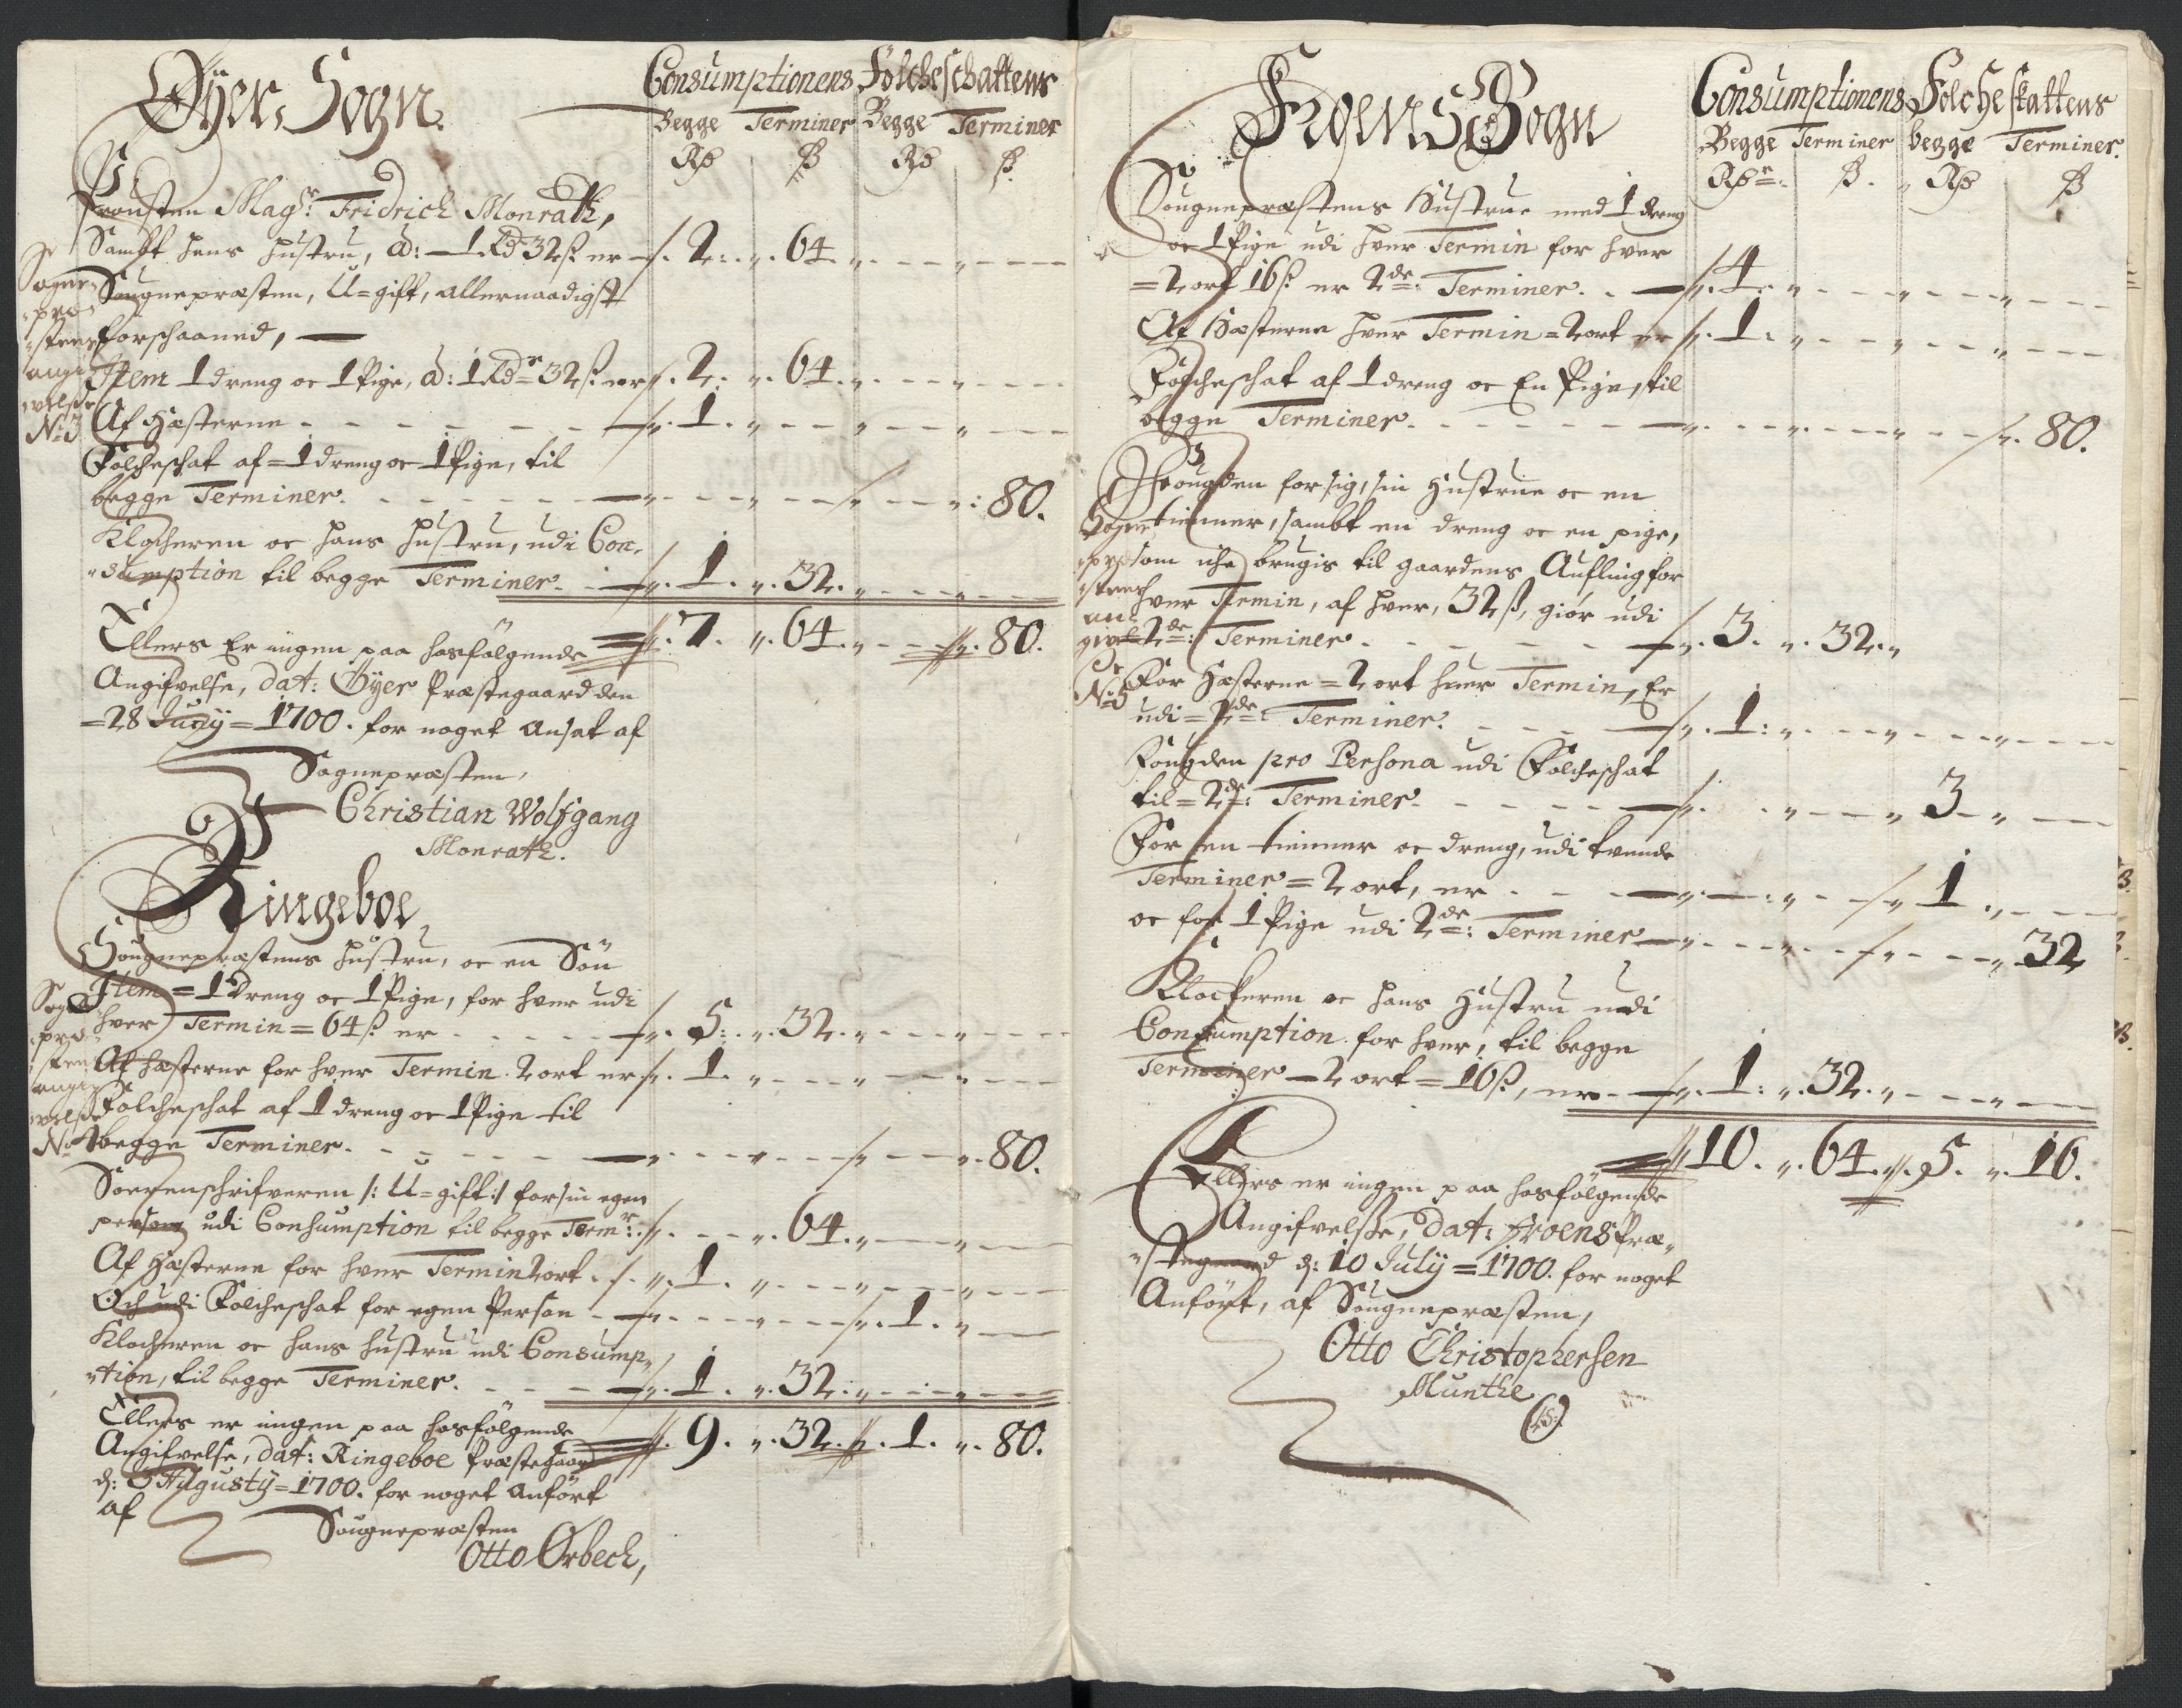 Øÿer, Sogn.
Consumptionens Folcheschattens
Begge Terminer Begge Terminer
Rd ß Rd ß
Prousten Magr: Fridrich Monrath,
Sambt hans hustru, a: 1 Rd 32 ß er 2: 64
Sougnepræsten, U=gift, allernaadigst
forschaaned,
Item 1 dreng oc 1 Pige, a: 1 Rdr 32 ß er 2. 64.
Af Hæsterne 1
Folcheschat af=1 dreng oc 1 Pige, til
begge Terminer. 80.
Klocheren oc hans hustru, udi Con-
sumption til begge Terminer. 1. 32.
7. 64. 80.
Sogne
præ
stens
angi
velse
No 3
Ellers Er ingen paa hosfølgende
Angifvelse, dat: Øÿer Præstegaard den
=28 Junÿ=1700. for noget Ansat af
Sognepræsten,
Christian Wolfgang
Monrath.
Ringeboe,
Sougnepræstens hustru, oc en Sön
Item=1 Dreng oc 1 Pige, for hver udi
hver Termin=64 ß er 5: 32.
Af hæsterne for hver Termin. 2 ort er 1.
Folcheschat af 1 dreng oc 1 Pige til
begge Terminer. 80.
Sogne
præ
stens
angif
velse
No 4
Soerenschrifveren /: U=gift :/ for sin egen
person udi Consumption til begge Termr: 64.
Af Hæsterne for hver Termin 2 ort 1.
Och udi Folcheschat for egen Person 1.
Klocheren oc hans hustru udi Consump-
tion, til begge Terminer. 1. 32.
9. 32. 1. 80.
Ellers er ingen paa hosfølgende
Angifvelse, dat: Ringeboe Præstegaard
d: 3 Augustÿ=1700. for noget Anført
af
Sougnepræsten
Otto Ørbech,
Froens Sogn
Consumptionens Folcheskattens
Begge Terminer begge Terminer.
Rdr: ß. Rd ß
Sougnepræstens Hustrue med 1 dreng
oc 1 Pige udi hver Termin for hver
=2 ort 16 ß er 2de: Terminer. 4.
Af Hæsterne hver Termin=2 ort er 1.
Folcheschat af 1 dreng oc En Pige, til
begge Terminer. 80.
Fougden for sig, sin Hustrue oc en
tienner, sambt en dreng oc en pige,
som iche brugis til gaardens Aufling for
hver Termin, af hver, 32 ß, giør udi
2de: Terminer 3. 32.
For Hæsterne=2 ort huer Termin, Er
udi=2de: Terminer. 1:
Sogne
præ
stens
an
givel
se
No 5
Fougden pro Persona udi Folcheschat
til=2de: Terminer. 3
For en tienner oc dreng, udi tvende
Terminer=2 ort, er 1
oc for 1 Pige udi 2de: Terminer 32
Klockeren oc hans Hustru udi
Consumption for hver, til begge
Terminer=2 ort=16 ß, er 1: 32.
10. 64. 5. 16.
Ellers er ingen paa hosfølgende
Angifvelse, dat: Froens Præ-
stegaard d: 10 Julÿ=1700. for noget
Anført, af Sougnepræsten,
Otto Christophersen
Munthe